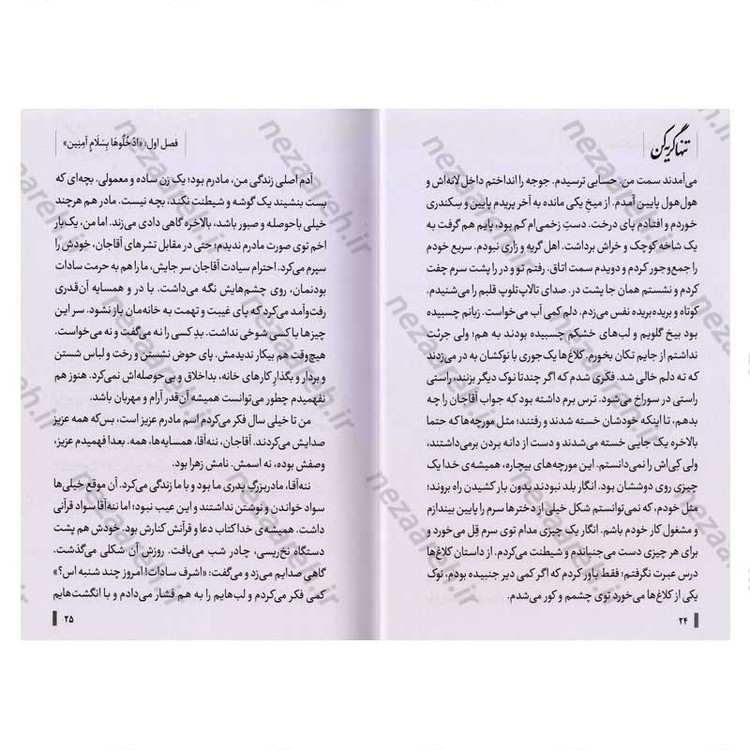 تنها گریه کن
می‌آمدند سمت من. حسابی ترسیدم. جوجه را انداختم داخل لانه‌اش و
هول‌هول پایین آمدم. از میخِ یکی مانده به آخر پریدم پایین و سِکندری
خوردم و افتادم پای درخت. دستِ زخمی‌ام کم بود، پایم هم گرفت به
یک شاخه کوچک و خراش برداشت. اهل گریه و زاری نبودم. سریع خودم
را جمع‌وجور کردم و دویدم سمت اتاق. رفتم تو و در را پشت سرم چفت
کردم و نشستم همان جا پشت در. صدای تالاپ‌تلوپ قلبم را می‌شنیدم.
کوتاه و بریده‌بریده نفس می‌زدم. دلم کمی آب می‌خواست. زبانم چسبیده
بود بیخ گلویم و لب‌های خشکم چسبیده بودند به هم؛ ولی جرئت
نداشتم از جایم تکان بخورم. کلاغ‌ها یک‌جوری با نوکشان به در می‌زدند
که ته دلم خالی شد. فکری شدم که اگر چندتا نوک دیگر بزنند، راستی
راستی در سوراخ می‌شود. ترس برم داشته بود که جواب آقاجان را چه
بدهم، تا اینکه خودشان خسته شدند و رفتند؛ مثل مورچه‌ها که حتما
بالاخره یک جایی خسته می‌شدند و دست از دانه بردن برمی‌داشتند،
ولی کی‌اش را نمی‌دانستم. این مورچه‌های بیچاره، همیشه‌ی خدا یک
چیزی روی دوششان بود. انگار بلد نبودند بدون بار کشیدن راه بروند؛
مثل خودم، که نمی‌توانستم شکل خیلی از دخترها سرم را پایین بیندازم
و مشغول کار خودم باشم. انگار یک چیزی مدام توی سرم قِل می‌خورد و
برای هر چیزی دست می‌جنباندم و شیطنت می‌کردم. از داستان کلاغ‌ها
درس عبرت نگرفتم؛ فقط باور کردم که اگر کمی دیر جنبیده بودم، نوک
یکی از کلاغ‌ها می‌خورد توی چشمم و کور می‌شدم.
۲۴
فصل اول: «ادْخُلُوهَا بِسَلَامٍ آمِنِین»
آدم اصلی زندگی من، مادرم بود؛ یک زن ساده و معمولی. بچه‌ای که
پست بنشیند یک گوشه و شیطنت نکند، بچه نیست. مادر هم هرچند
خیلی باحوصله و صبور باشد، بالاخره گاهی دادی می‌زند. اما من، یک‌بار
اخم توی صورت مادرم ندیدم؛ حتی در مقابل تشرهای آقاجان، خودش را
سپرم می‌کرد. احترام سیادت آقاجان سر جایش، ما را هم به حرمت سادات
بودنمان، روی چشم‌هایش نگه می‌داشت. با در و همسایه آن‌قدری
رفت‌وآمد می‌کرد که پای غیبت و تهمت به خانه‌مان باز نشود. سر این
چیزها با کسی شوخی نداشت. بدِ کسی را نه می‌گفت و نه می‌خواست.
هیچ‌وقت هم بیکار ندیدمش. پای حوض نشستن و رخت و لباس شستن
و بردار و بگذارِ کارهای خانه، بداخلاق و بی‌حوصله‌اش نمی‌کرد. هنوز هم
نفهمیدم چطور می‌توانست همیشه آن‌قدر آرام و مهربان باشد.
من تا خیلی سال فکر می‌کردم اسم مادرم عزیز است، بس‌که همه عزیز
صدایش می‌کردند. آقاجان، ننه‌آقا، همسایه‌ها، همه. بعدا فهمیدم عزیز،
وصفش بوده، نه اسمش. نامش زهرا بود.
ننه‌آقا، مادربزرگِ پدری ما بود و با ما زندگی می‌کرد. آن موقع خیلی‌ها
سواد خواندن و نوشتن نداشتند و این عیب نبود؛ اما ننه‌آقا سواد قرآنی
داشت. همیشه‌ی خدا کتاب دعا و قرآنش کنارش بود. خودش هم پشت
دستگاه نخ‌ریسی، چادر شب می‌بافت. روزش آن شکلی می‌گذشت.
گاهی صدایم می‌زد و می‌گفت: «اشرف سادات! امروز چند شنبه اس؟»
کمی فکر می‌کردم و لب‌هایم را به هم فشار می‌دادم و با انگشت‌هایم
۲۵
nezaareh.ir